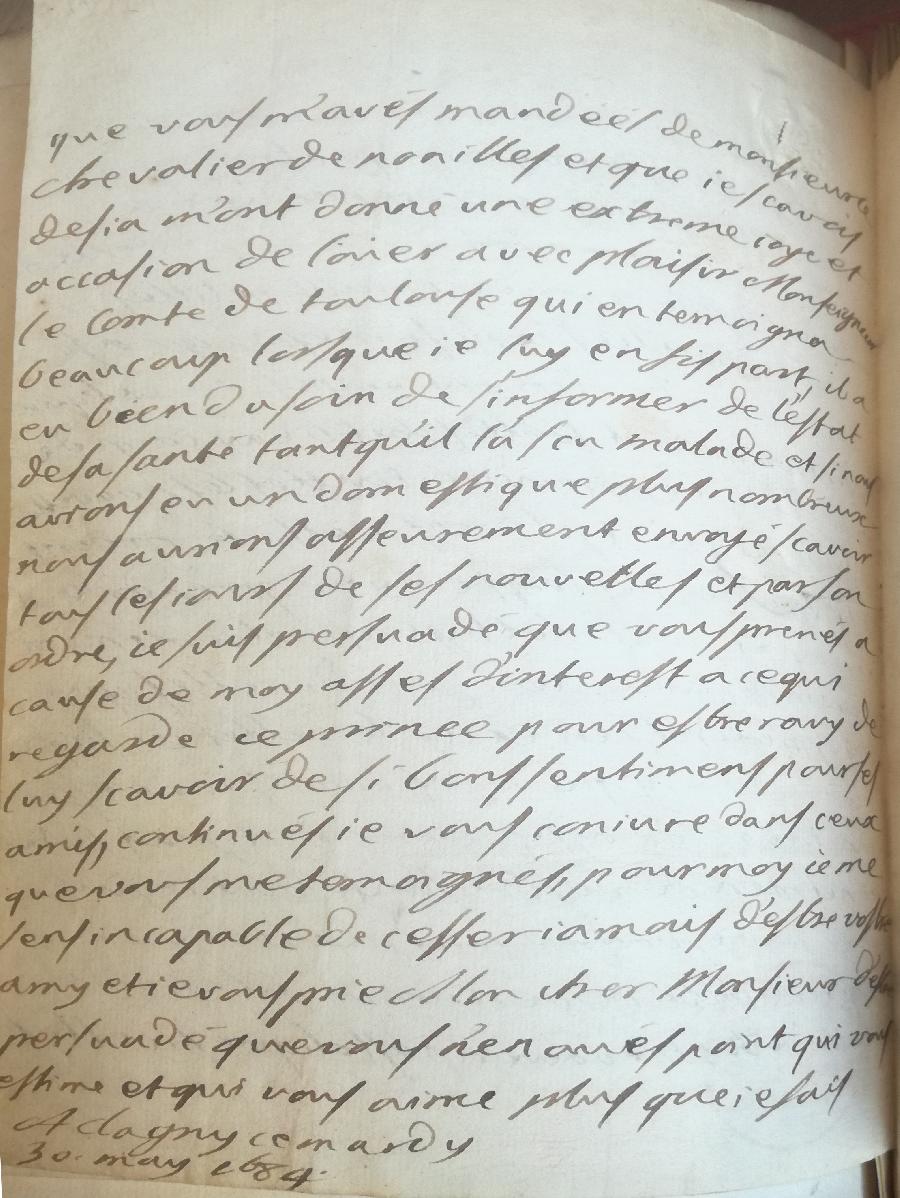 que vous m'avés mandéés de monsieur le
chevalier de noailles et que ie scavois
desia m'ont donné une extreme ioye et
accasion de l'oier avec plaisir Monseigneur
le Comte de toulouse qui en temoigna
beaucoup lorsque ie luy en fis part, il a
eu bien du soin de s'informer de l'estat
de sa santé tant qu'il l'a scu malade et si nous
avions eu un domestique plus nombreux
nous aurions asseurement envoyé scavoir
tous les iours de ses nouvelles et par son
ordre, ie suis persuadé que vous prenés a
cause de moy asses d'interest a ce qui
regarde ce prince pour estre ravy de
luy scavoir de si bons sentimens pour ses
amis, continués ie vous coniure dans ceux
que vous me temoignés, pour moy ie me
sens incapable de cesser iamais d'estre vostre
amy et ie vous prie Mon cher Monsieur d'estre
persuadé que vous n'en avés point qui vous
estime et qui vous aime plus que ie fais
A clagny ce mardy
30. may 1684.